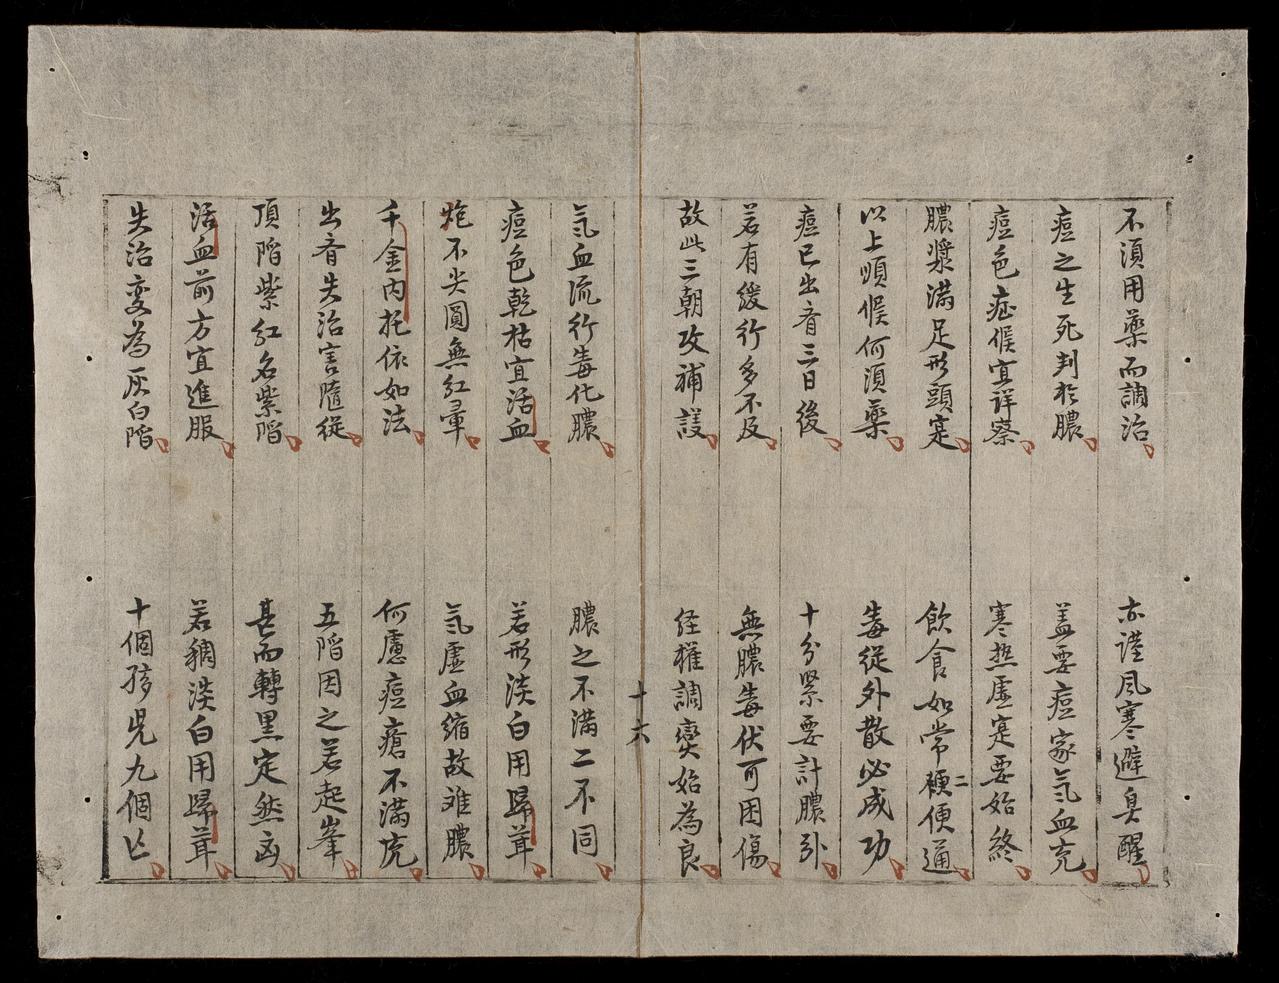 不須用藥而調治
亦謹風寒避臭醒
痘之生死判於膿
盖要痘家氣血充
痘色症候宜詳察
寒热虛寔要始終
膿漿滿足形頭寔
飲食如常二便通
以上順候何須藥
毒從外散必成功
痘已出齊三日後
十分緊要計膿引
若有緩行多不及
無膿毒伏可困傷
故此三朝攻補
経權調燮始為良
十六
氣血流行毒化膿
膿之不滿二不同
痘色乾枯宜活血
若形淡白用歸茸
炮不尖圓無紅暈
氣虛血縮故难膿
千金內托依如法
何慮痘瘡不滿
出齊失治害隨從
五陷因之若起峯
頂陷紫紅名紫陷
甚而轉黒定然凶
活血前方宜進服
若稠淡白用歸茸
失治变為灰白陷
十個孩児九個亡